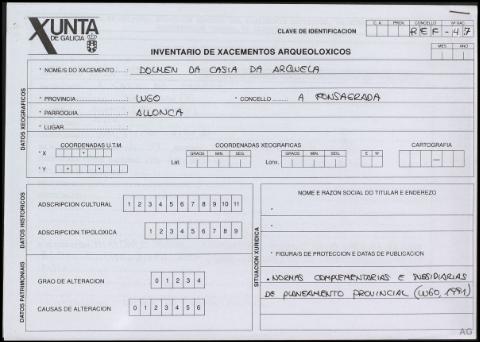 XUNTA
DE GALICIA
CLAVE DE IDENTIFICACION
C. A. PROV. CONCELLO Nº XAC.
REF-47
MES ANO
INVENTARIO DE XACEMENTOS ARQUEOLOXICOS
DATOS XEOGRAFICOS
* NOME/S DO XACEMENTO ....: DOLMEN DA CASIA DA ARQUELA
* PROVINCIA ....: LUGO * CONCELLO ....: A FONSAGRADA
* PARROQUIA ....: ALLONCA
* LUGAR ....:
COORDENADAS U.T.M. COORDENADAS XEOGRAFICAS CARTOGRAFIA
* X
* Y
Lat. GRAOS MIN. SEG. Lonx. GRAOS MIN. SEG. E W
DATOS HISTORICOS
ADSCRIPCION CULTURAL 1 2 3 4 5 6 7 8 9 10 11
ADSCRIPCION TIPOLOXICA 1 2 3 4 5 6 7 8 9
DATOS PATRIMONIAIS
GRAO DE ALTERACION 0 1 2 3 4
CAUSAS DE ALTERACION 0 1 2 3 4 5 6
SITUACION XURIDICA
NOME E RAZON SOCIAL DO TITULAR E ENDEREZO
* FIGURA/S DE PROTECCION E DATAS DE PUBLICACION
. NORMAS COMPLEMENTARIAS E SUBSIDIARIAS
DE PLANEAMENTO PROVINCIAL (LUGO, 1991)
AG